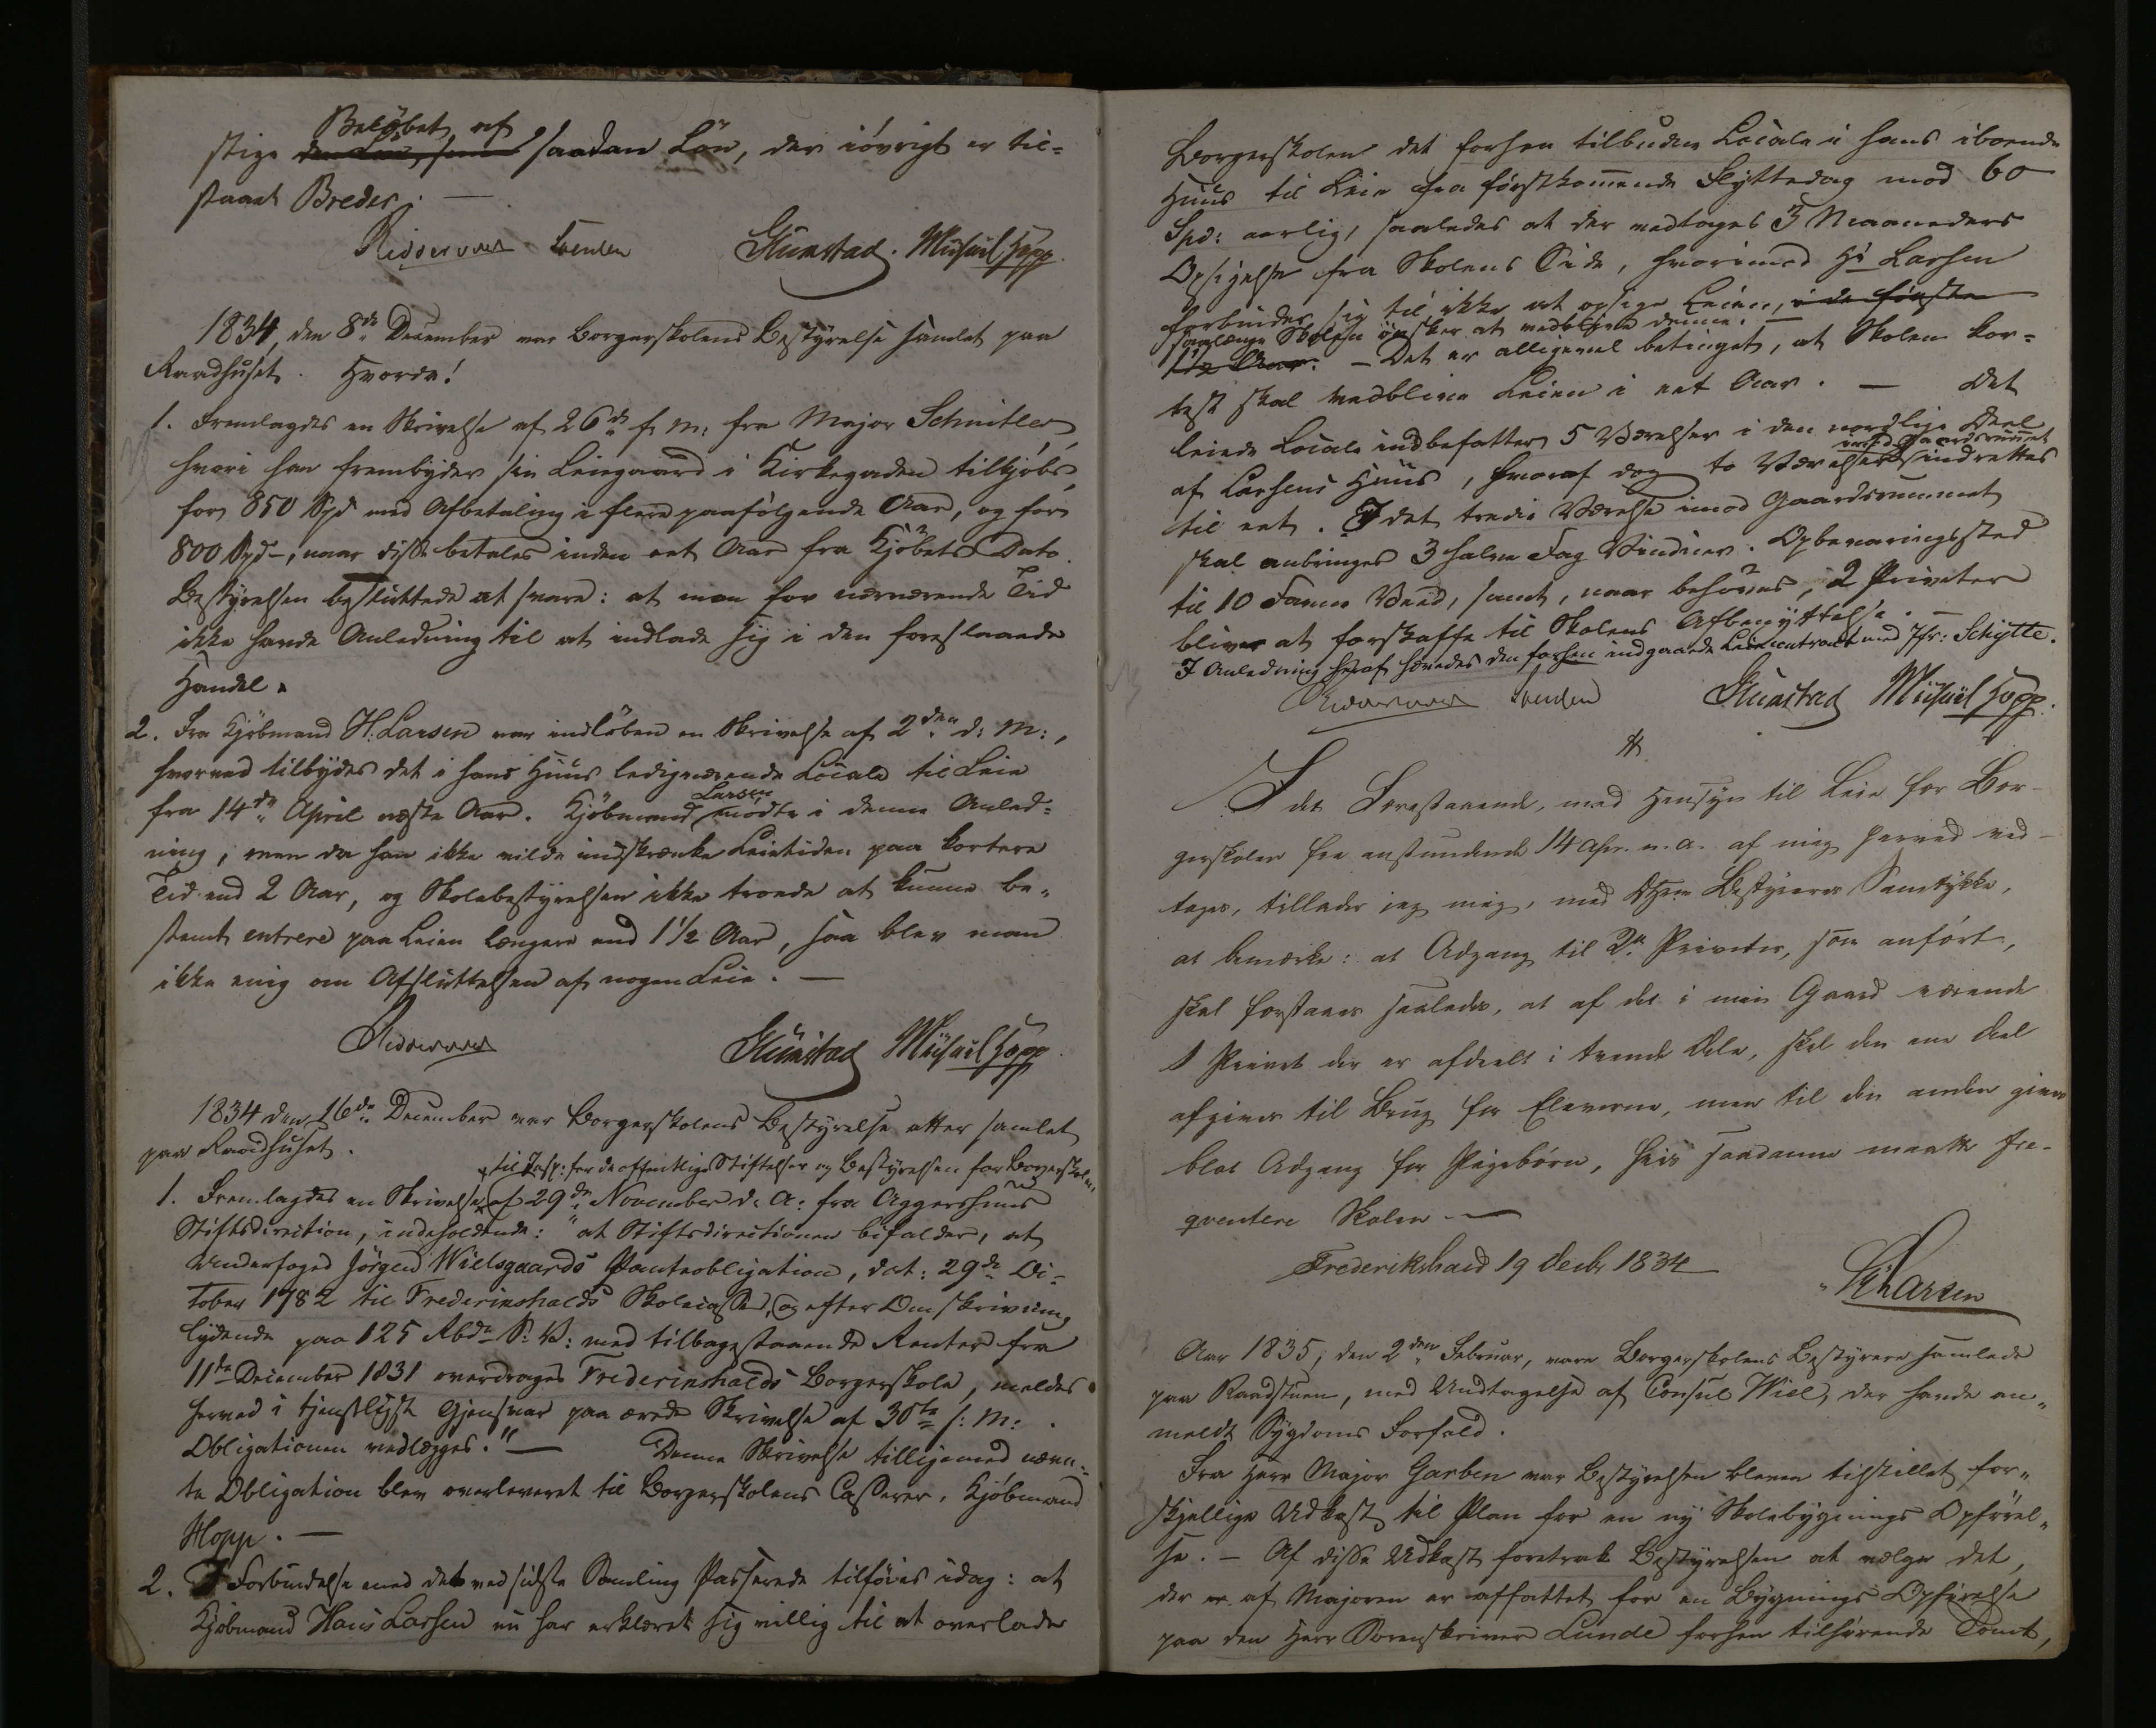 Beløbet af
stige den Løn, som saadan Løn, der iøvrigt er til-
staaet Breder. —
Stenersen Glimstad. Michael Hopp.
1834, den 8de December var Borgerskolens Bestyrelse samlet paa
Raadhuset. Hvorda!
1. Fremlagdes en Skrivelse af 26de f. M. fra Major Schnitler,
hvori han frembyder sin Leiegaard i Kirkegaden tilkjøbs,
for 850 Spd med Afbetaling i flere paafølgende Aar, og for
800 Spd, naar disse betales inden eet Aar fra Kjøbets Dato.
Bestyrelsen besluttede at svare: at man for nærværende Tid
ikke havde Anledning til at indlade sig i den foreslaaede
Handel.
2. Fra Kjøbmand H. Larsen var indløben en Skrivelse af 2den d: M:,
hvorved tilbydes det i hans Huus ledigværende Locale til Leie
fra 14de April næste Aar. Kjøbmand Larsen mødte i denne Anled-
ning, men da han ikke vilde indskrænke Leietiden paa kortere
Tid end 2 Aar, og Skolebestyrelsen ikke troede at kunne be-
stemt entrere paa Leien længere end 1½ Aar, saa blev man
ikke enig om Afsluttelsen af nogen Leie. —
Glimstad Michael Hopp
1834 den 16de December var Borgerskolens Bestyrelse atter samlet
paa Raadhuset.
til Insp: for de offentlige Stiftelser og Bestyrelsen for Borgerskolen
1. Fremlagdes en Skrivelse af 29de November d. A: fra Aggershuus
Stiftsdirection, indeholdende: "at Stiftsdirectionen bifalder, at
Underfoged Jørgen Wielsgaards Panteobligation, dat: 29de Oc-
tober 1782 til Fredericshalds Skolecasse, og efter Omskrivning
lydende paa 125 Rbdr S: V: med tilbagestaaende Renter fra
11de December 1831 overdrages Fredericshalds Borgerskole, meldes
herved i tjenstligst Gjensvar paa ærede Skrivelse af 30te f: M:
Obligationen vedlægges." — Denne Skrivelse tilligemed nævn-
te Obligation blev overleveret til Borgerskolens Casserer, Kjøbmand
Hopp. —
2. I Forbindelse med det ved sidste Samling Passerede tilføies idag: at
Kjøbmand Hans Larsen nu har erklæret sig villig til at overlade
Borgerskolen det forhen tilbudne Locale i hans iboende
Huus til Leie fra førstkommende Flyttedag mod 60
Spd: aarlig, saaledes at der vedtages 3 Maaneders
Opsigelse fra Skolens Side, hvorimod Hr Larsen
forbinder sig til ikke at opsige Leien, i de første
saalænge Skolen ønsker at vedblive denne. —
1½ Aar. — Det er alligevel betinget, at Skolen kor-
test skal vedblive Leien i eet Aar. — Det
leiede Locale indbefatter 5 Værelser i den nordlige Deel
af Larsens Huus, hvoraf dog to Værelser imod Gaardsrummet indrettes
til eet. I det tredie Værelse imod Gaardsrummet
skal anbringes 3 halve Fag Vinduer. Opbevaringssted
til 10 Favne Veed, samt, naar behøves, 2 Priveter
bliver at forskaffe til Skolens Afbenyttelse. —
I Anledning heraf hævedes den forhen indgaaede Leiecontract med Jfr: Schytte.
Stenersen Glimstad Michael Hopp.
I det Forestaaende, med Hensyn til Leie for Bor-
gerskolen fra anstundende 14 Apr. n. a. af mig herved ved-
tages, tillader jeg mig, med Bestyreres Samtykke,
at bemærke: at Adgang til 2de Priveter, som anført,
skal forstaaes saaledes, at af det i min Gaard værende
1 Privet der er afdeelt i tvende Dele, skal den ene Deel
afgives til Brug for Eleverne, men til den anden gives
blot Adgang for Pigebørn, hvis saadanne maatte fre-
qventere Skolen. —
Frederikshald 19 Decbr 1834
H Larsen
Aar 1835, den 2den Februar, vare Borgerskolens Bestyrere samlede
paa Raadstuen, med Undtagelse af Consul Wiel, der havde an-
meldt Sygdoms Forfald.
Fra Herr Major Garben var Bestyrelsen bleven tilstillet for-
skjellige Udkast til Plan for en ny Skolebygnings Opførel-
se. — Af disse Udkast foretrak Bestyrelsen at vælge det,
der er af Majoren er affattet for en Bygnings Opførelse
paa den Herr Sorenskriver Lunde forhen tilhørende Tomt,